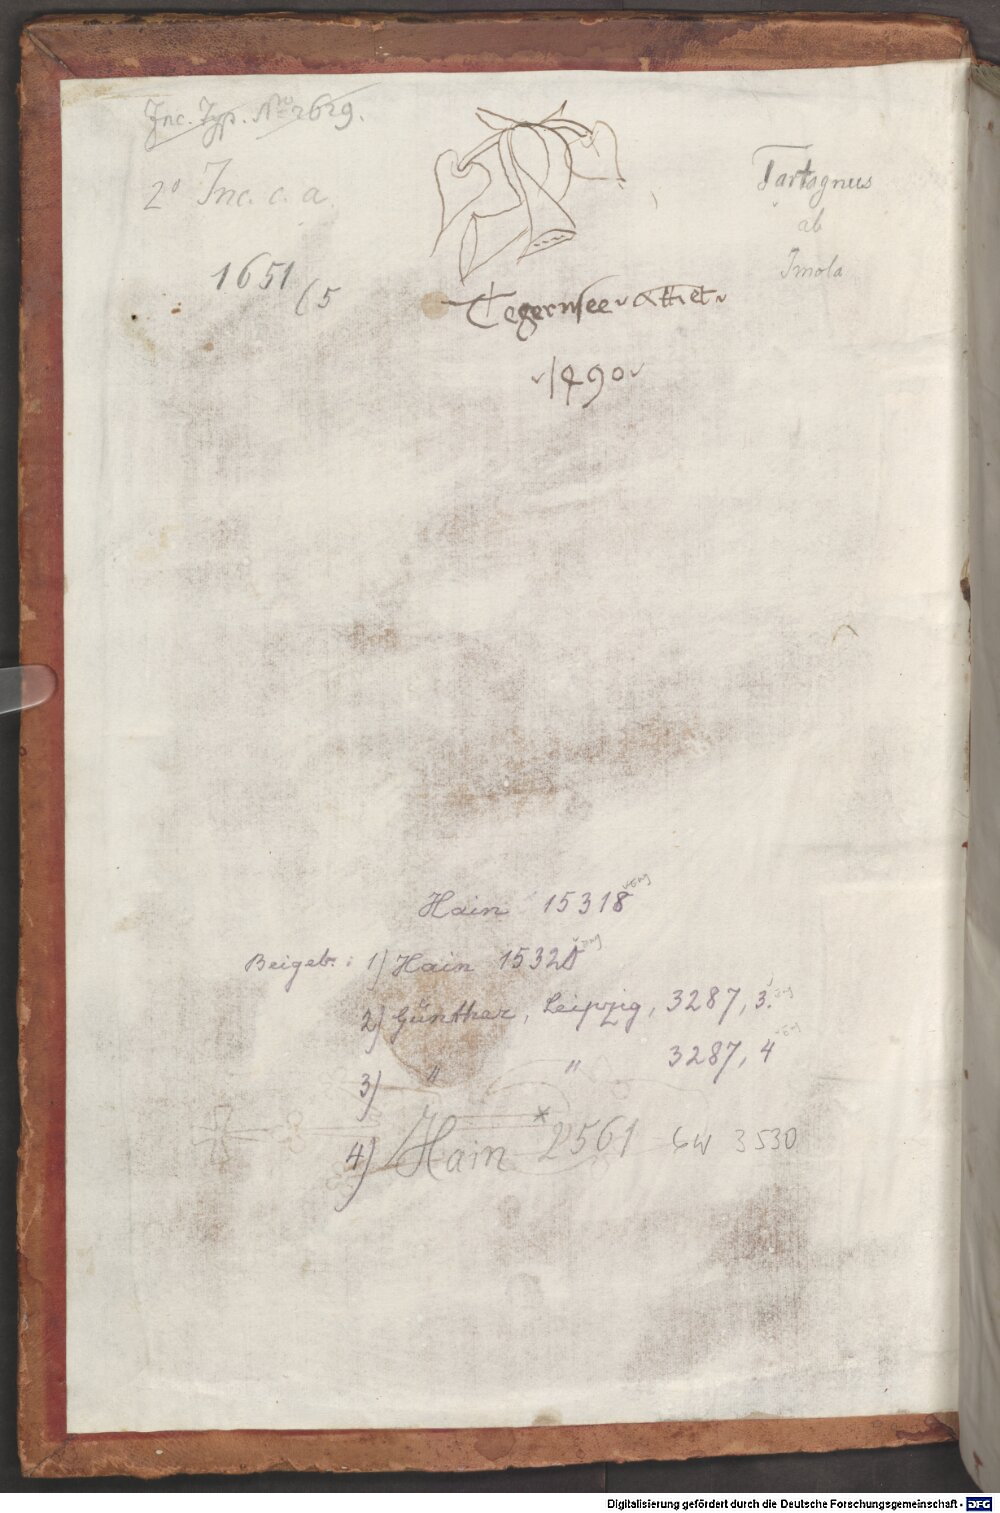 Inc. Typ. No 2629.
2° Inc. c. a.
1651
(5
Tartagnus
ab
Imola
Tegernsee
1490
Hain 15318
Beigeb.: 1) Hain 1532
2) Günther, Leipzig, 3287, 3.
3) " " 3287, 4
4) Hain *2561 GW 3530
Digitalisierung gefördert durch die Deutsche Forschungsgemeinschaft - DFG